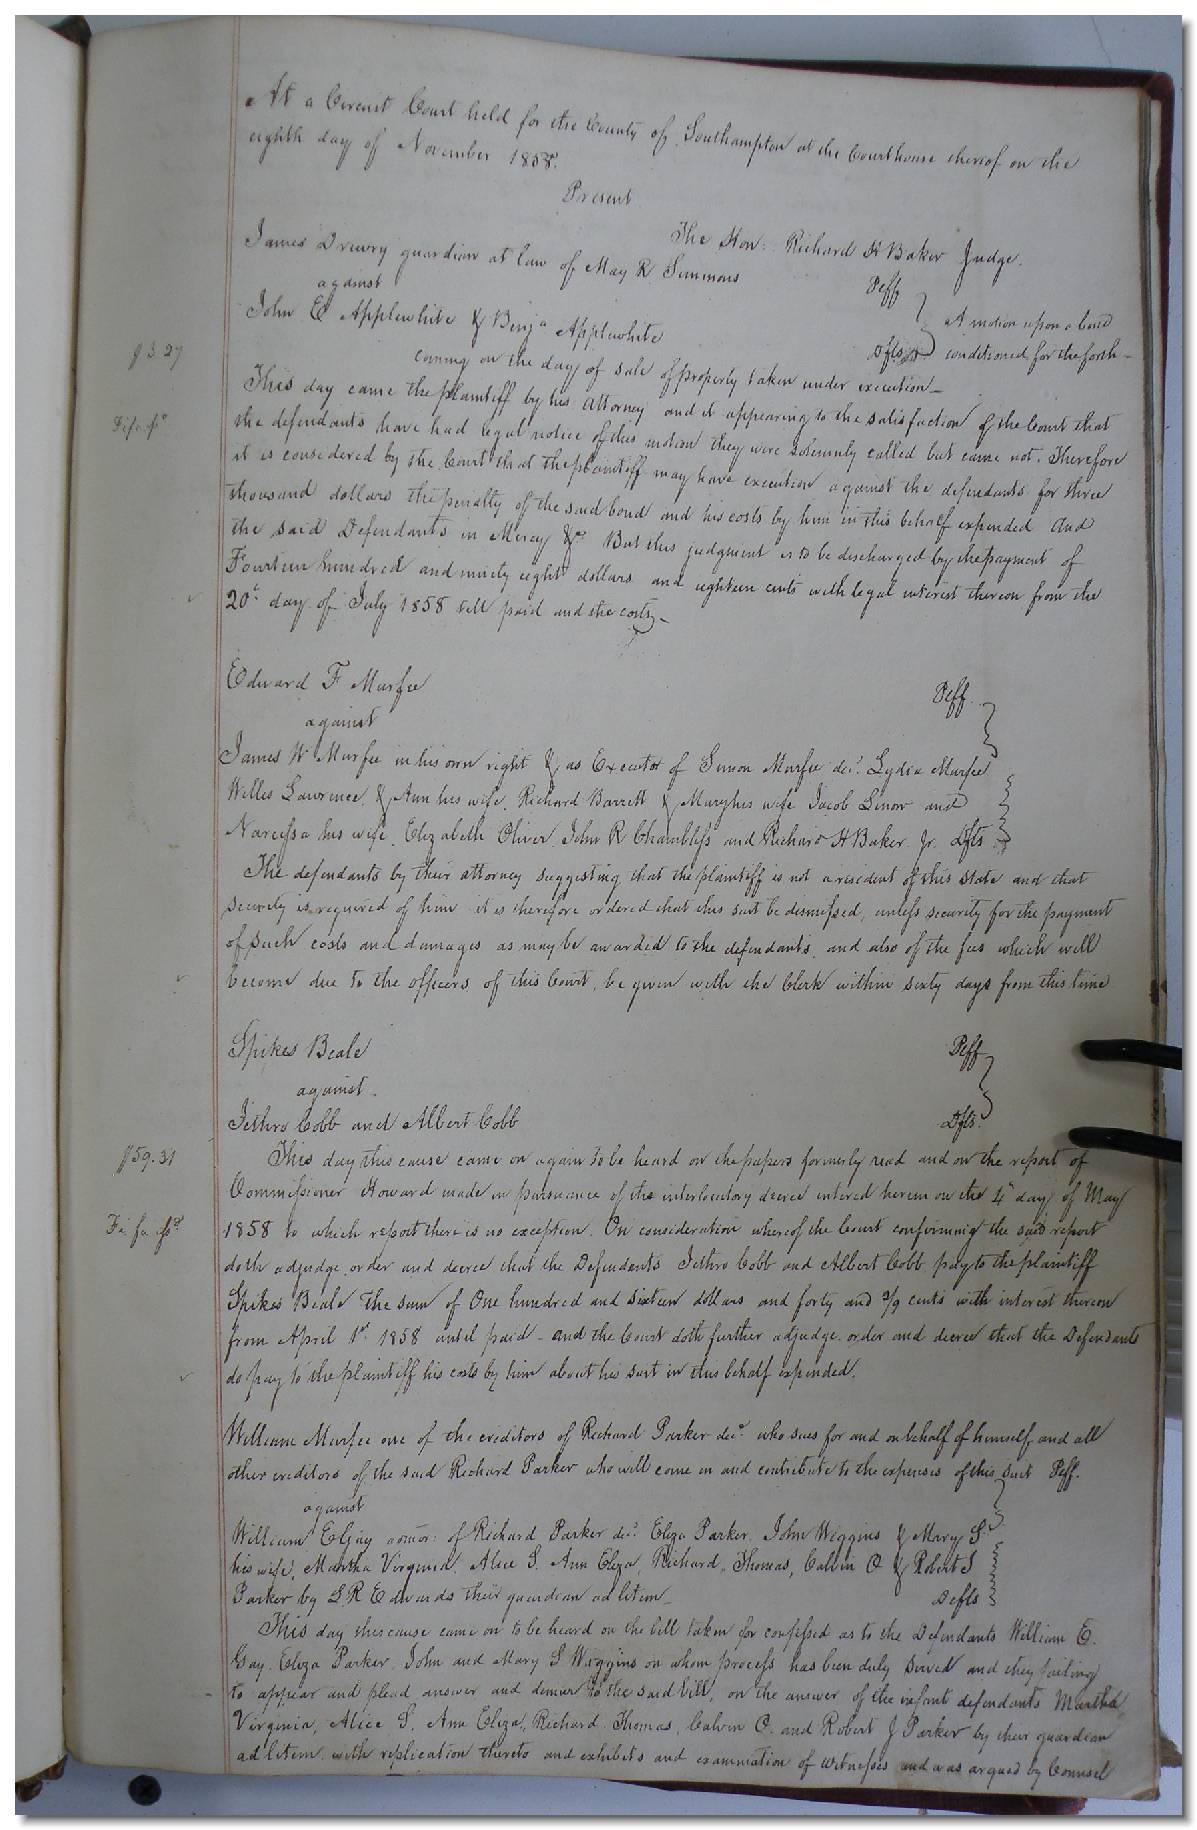 At a Circuit Court held for the County of Southampton at the Courthouse thereof on the
eighth day of November 1858.
Present
The Hon: Richard H Baker Judge.
James Drewry guardian at law of May R. Simmons Peff
against
John E Applewhite & Benja Applewhite Dfts
A motion upon a bond
conditioned for the forth-
coming on the day of sale of property taken under execution-
$3.27
This day came the plaintiff by his Attorney and it appearing to the satisfaction of the Court that
the defendants have had legal notice of this motion they were solemnly called but came not. Therefore
it is considered by the Court that the plaintiff may have execution against the defendants for three
thousand dollars the penalty of the said bond and his costs by him in this behalf expended and
the said Defendants in Mercy &c. But this judgment is to be discharged by the payment of
Fourteen hundred and ninety eight dollars and eighteen cents with legal interest thereon from the
20t day of July 1858 till paid and the costs-
Edward F Murfee Peff.
against
James W Murfee in his own right & as Executor of Simon Murfee decd. Lydia Murfee
Willes Lawrence & Ann his wife, Richard Barrett & Mary his wife Jacob Linow and
Narcissa his wife, Elizabeth Oliver, John R Chambliss and Richard H Baker Jr. Dfts
The defendants by their attorney suggesting that the plaintiff is not a resident of this State and that
security is required of him it is therefore ordered that this suit be dismissed, unless security for the payment
of such costs and damages as may be awarded to the defendants, and also of the fees which will
become due to the officers of this Court, be given with the Clerk within sixty days from this time
Spikes Beale Peff
against.
Jethro Cobb and Albert Cobb Dfts.
$59.31
Fi. fa. isd
This day this cause came on again to be heard on the papers formerly read and on the report of
Commissioner Howard made in pursuance of the interlocutory decree entered herein on the 4th day of May
1858 to which report there is no exception. On consideration whereof the Court confirming the said report
doth adjudge, order and decree that the Defendants Jethro Cobb and Albert Cobb pay to the plaintiff
Spikes Beale the sum of One hundred and sixteen dollars and forty and 3/9 cents with interest thereon
from April 1st 1858 until paid - and the Court doth further adjudge, order and decree that the Defendants
do pay to the plaintiff his costs by him about his suit in this behalf expended.
William Murfee one of the creditors of Richard Parker decd. who sues for and on behalf of himself and all
other creditors of the said Richard Parker who will come in and contribute to the expenses of this suit Peff.
against
William E Gay admor: of Richard Parker decd. Eliza Parker, John Wiggins & Mary S.
his wife, Martha Virginia, Alice S. Ann Eliza, Richard, Thomas, Calvin O & Robert S
Parker by L. R Edwards their guardian ad litem- Defts
This day this cause came on to be heard on the bill taken for confessed as to the Defendants William E.
Gay, Eliza Parker, John and Mary S Wiggins on whom process has been duly served and they failing
to appear and plead, answer and demur to the said bill, on the answer of the infant defendants Martha
Virginia, Alice S. Ann Eliza, Richard, Thomas, Calvin O. and Robert J Parker by their guardian
ad litem, with replication thereto and exhibits and examination of witnesses and was argued by Counsel